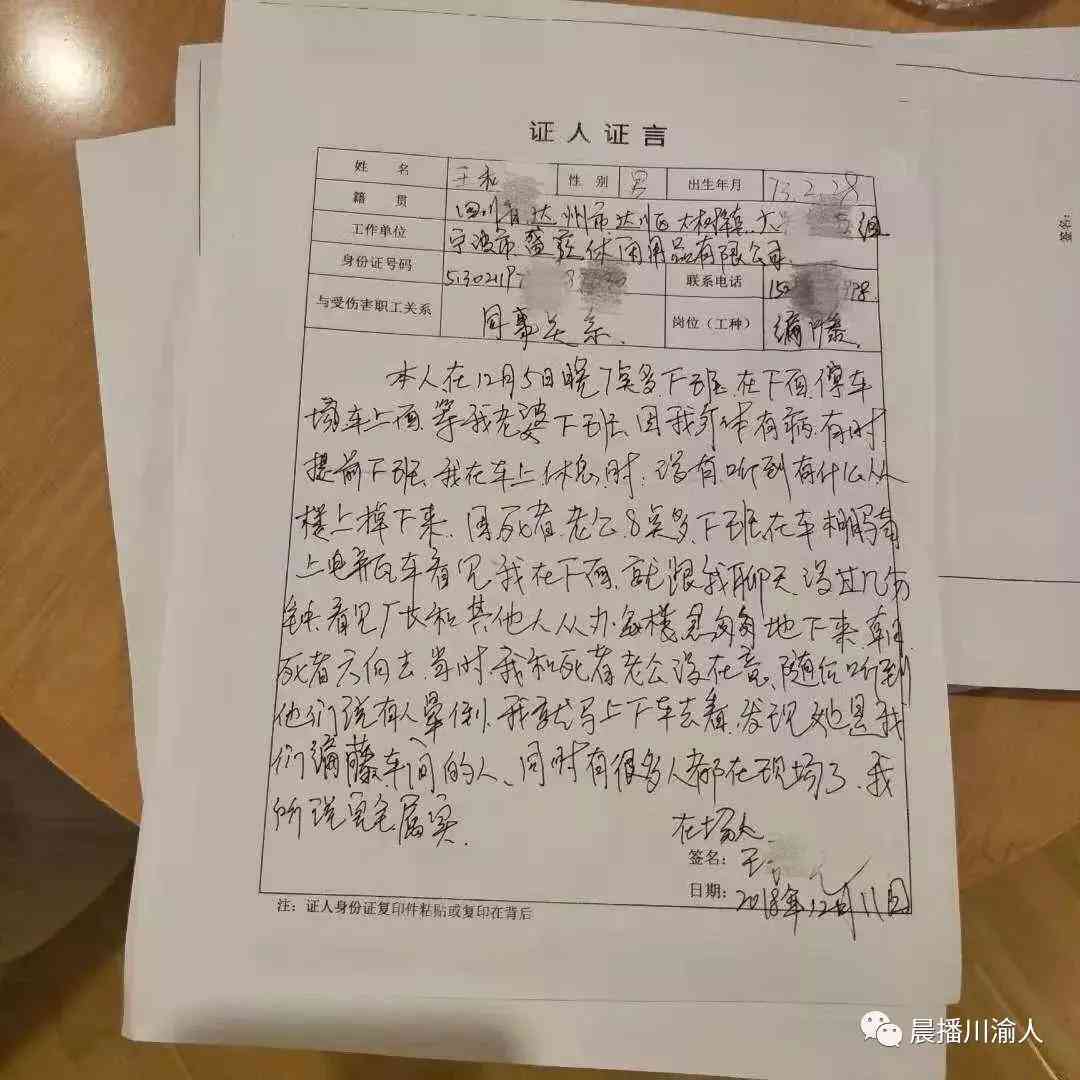 证人证言
姓名 王和 性别 男 出生年月 73.2.28
籍贯 四川省达州市达川区大树镇大 组
工作单位 宁波市 休闲用品有限公司
身份证号码 513021197 联系电话 15 98
与受伤害职工关系 同事关系. 岗位(工种) 编藤.
本人在12月5日晚7点多下班.在下面停车
场车上面.等我老婆下班.因我身体有病.有时.
提前下班.我在车上休息时.没有听到有什么从
楼上掉下来.因死者老公8点多下班.在车棚骑
上电瓶车看见我在下面.就跟我聊天.没过几分
钟.看见厂长和其他人从办公楼急匆匆地下来.朝
死者方向去.当时.我和死者老公没在意、随后听到
他们说有人晕倒.我就马上下车去看.发现她是我
们编藤车间的人、同时有很多人都在现场了.我
所说完全属实.
在场人
签名: 王
日期: 2018年12月11日
注: 证人身份证复印件粘贴或复印在背后
晨播川渝人